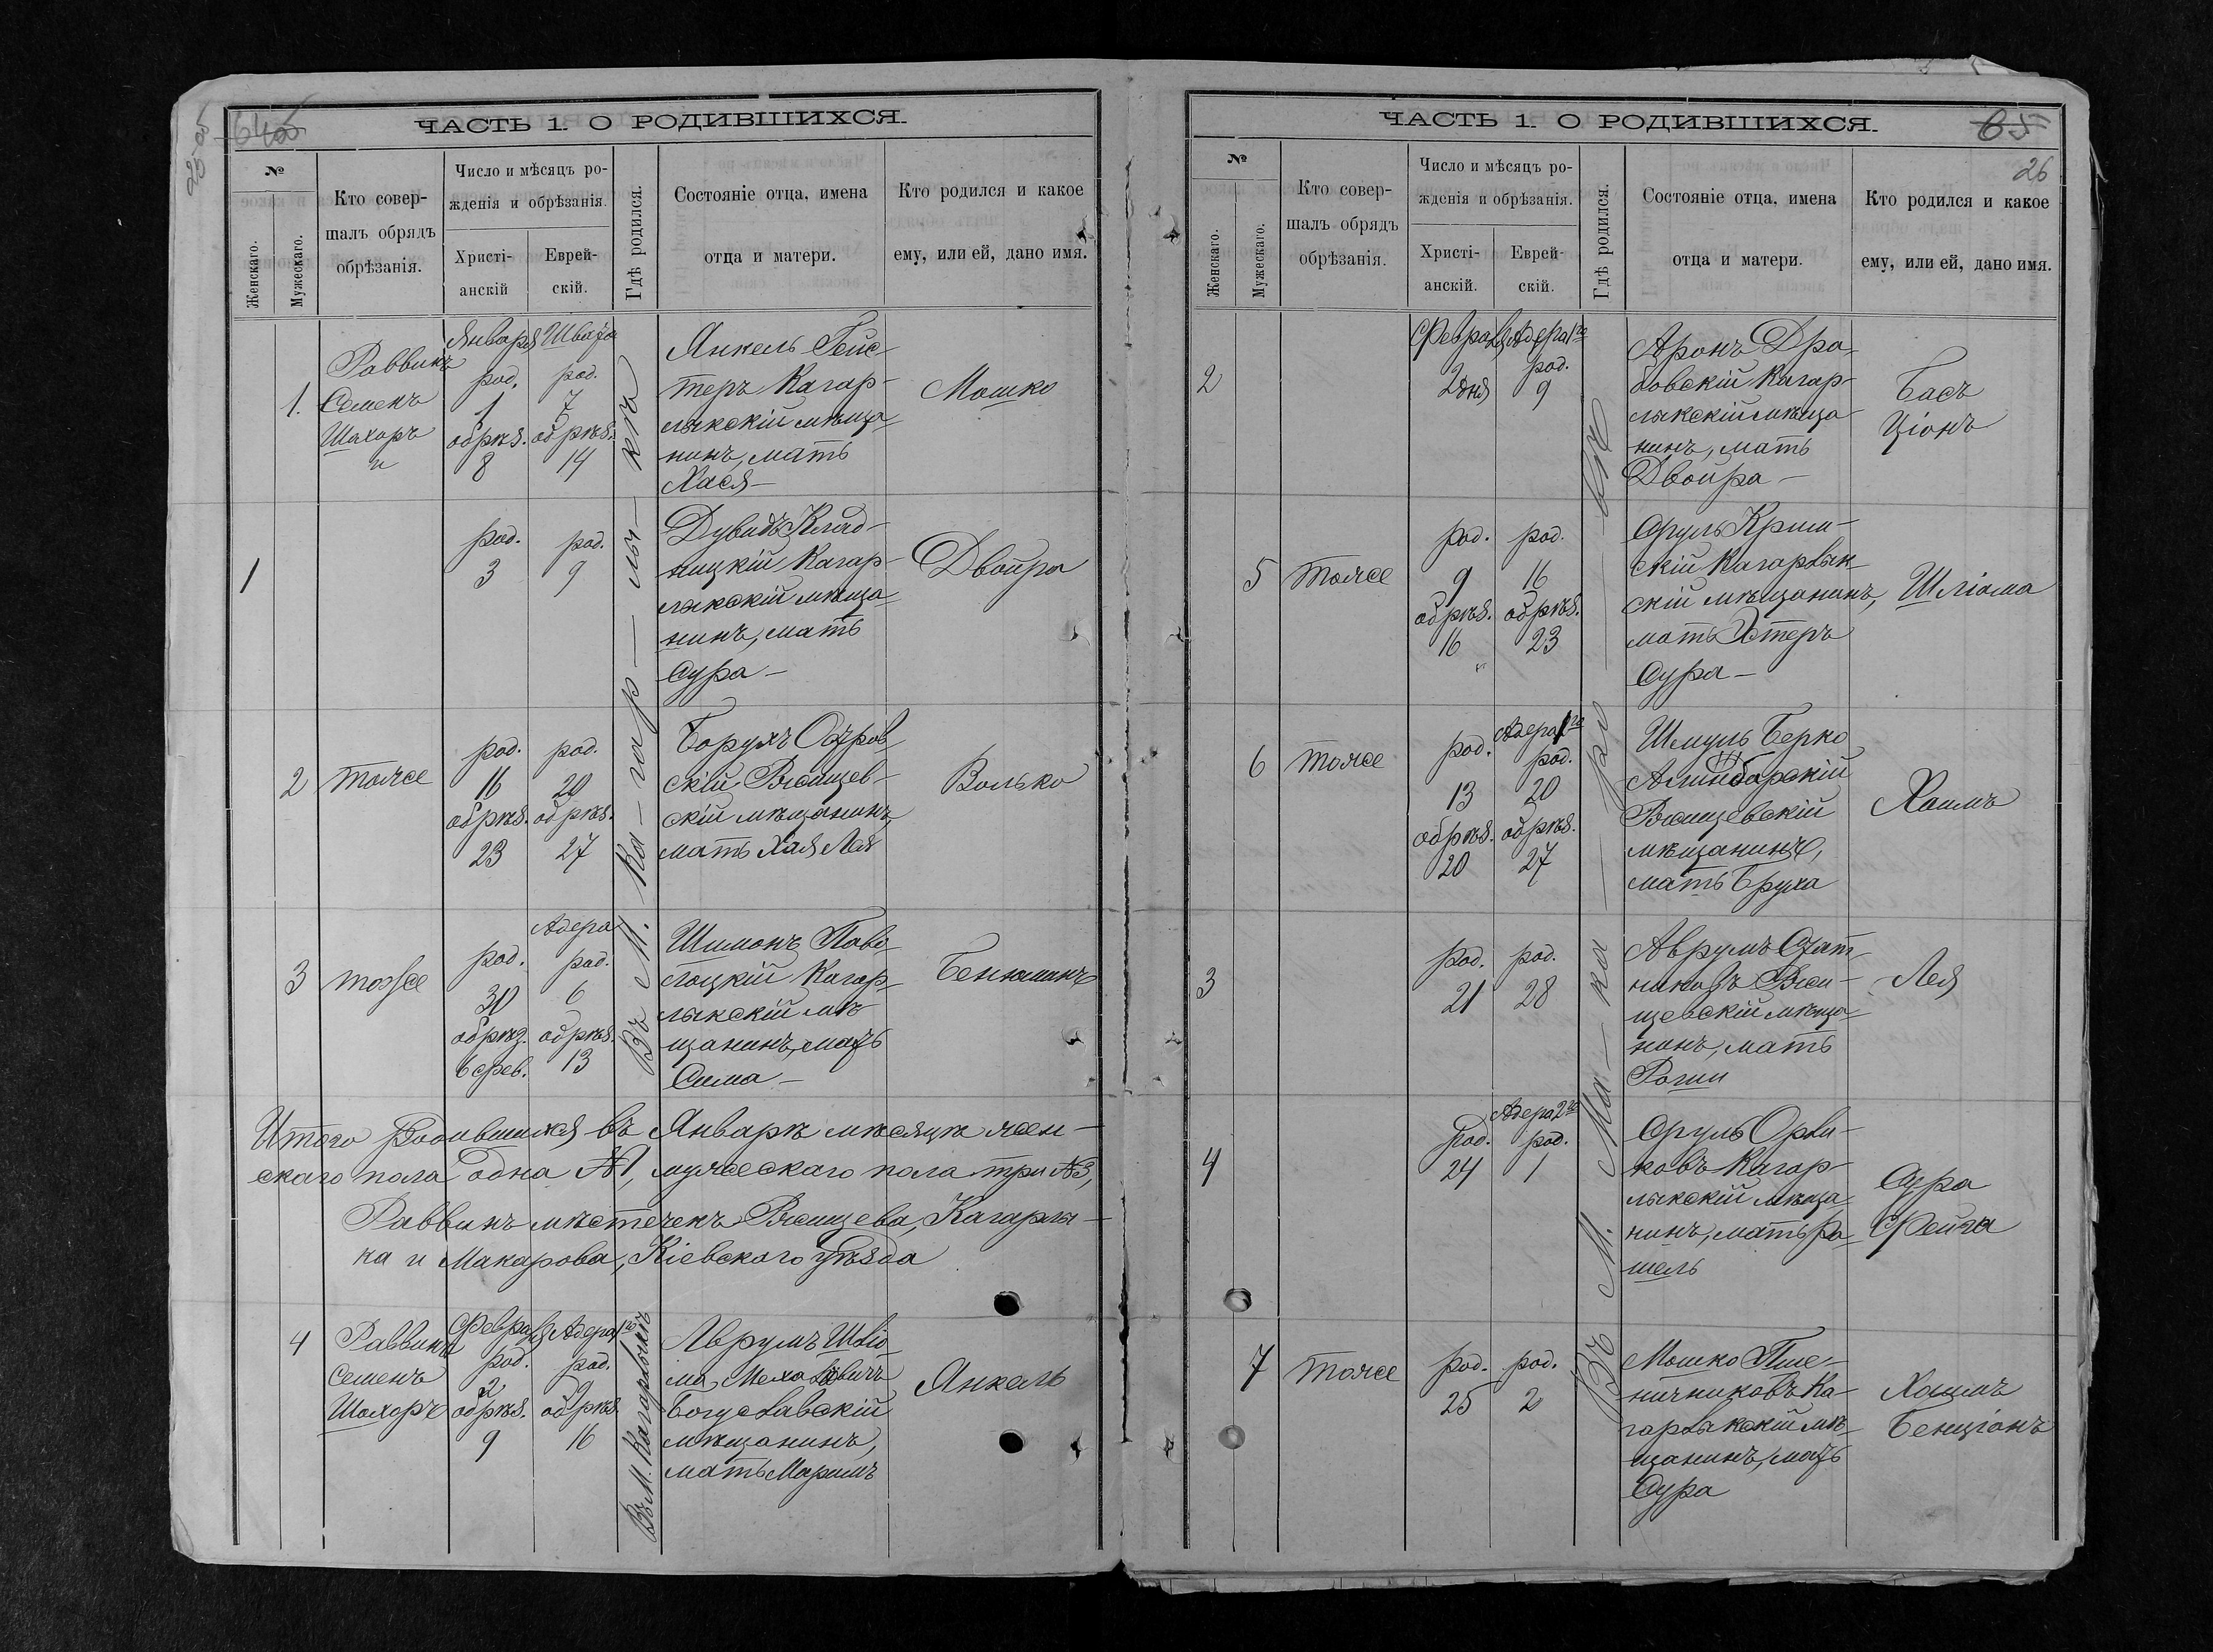 25-об
64об
ЧАСТЬ 1. О РОДИВШИХСЯ.
№
Женскаго.
Мужескаго.
Кто совер-
шалъ обрядъ
обрѣзанія.
Число и мѣсяцъ ро-
жденія и обрѣзанія.
Христі-
анскій
Еврей-
скій.
Гдѣ родился.
Состояніе отца, имена
отца и матери.
Кто родился и какое
ему, или ей, дано имя.
1.
Раввинъ
Семенъ
Шахоръ
Января
род.
1
обрѣз.
8
Швата
род.
7
обрѣз.
14
Въ М. Ка-гар-лы-кѣ
Янкель Гейс-
теръ Кагар-
лыкскій мѣща-
нинъ, мать
Хася
Мошко
1
род.
3
род.
9
Дувидъ Клад-
ницкій Кагар-
лыкскій мѣща-
нинъ, мать
Сура
Двойра
2
тоже
род.
16
обрѣз.
23
род.
20
обрѣз.
27
Борухъ Остров-
скій Ржищев-
скій мѣщанинъ,
мать Хая Лея
Волько
3
тоже
род.
30
обрѣз.
6 фев.
Адера
род.
6
обрѣз.
13
Шимонъ Паво-
лоцкій Кагар-
лыкскій мѣ-
щанинъ, мать
Сима
Бенюминъ
Итого Родившихся въ Январѣ мѣсяцѣ жен-
скаго пола одна №1, мужескаго пола три №3,
Раввинъ мѣстечекъ Ржищева, Кагарлы-
ка и Макарова, Кіевскаго уѣзда
4
Раввинъ
Семенъ
Шахоръ
Февраля
род.
2
обрѣз.
9
Адера 1го
род.
9
обрѣз.
16
Въ М. Кагарлыкѣ
Аврумъ Шліо-
ма
Богуславскій
мѣщанинъ,
мать Маримъ
Янкель
65
26
ЧАСТЬ 1. О РОДИВШИХСЯ.
№
Женскаго.
Мужескаго.
Кто совер-
шалъ обрядъ
обрѣзанія.
Число и мѣсяцъ ро-
жденія и обрѣзанія.
Христі-
анскій.
Еврей-
скій.
Гдѣ родился.
Состояніе отца, имена
отца и матери.
Кто родился и какое
ему, или ей, дано имя.
2
Февраля
2 дня
Адера 1го
род.
9
Аронъ Дра-
бовскій Кагар-
лыкскій мѣща-
нинъ, мать
Двойра
Басъ
Ціонъ
5
тоже
род.
9
обрѣз.
16
род.
16
обрѣз.
23
Сруль Крим-
скій Кагарлык-
скій мѣщанинъ,
мать Эстеръ
Сура
Шліома
6
тоже
род.
13
обрѣз.
20
Адера 1го
род.
20
обрѣз.
27
Шмуль Берко
Ржищевскій
мѣщанинъ,
мать Бруха
Хаимъ
3
род.
21
род.
28
Аврумъ
Ржи-
щевскій мѣща-
нинъ, мать
Лея
4
род.
24
Адера 2го
род.
1
Сруль
Кагар-
лыкскій мѣща-
нинъ, мать Ра-
шель
Сура
Фейга
7
тоже
род.
25
род.
2
Мошко Пше-
ничниковъ Ка-
гарлыкскій мѣ-
щанинъ, мать
Сура
Хаимъ
Бенціонъ